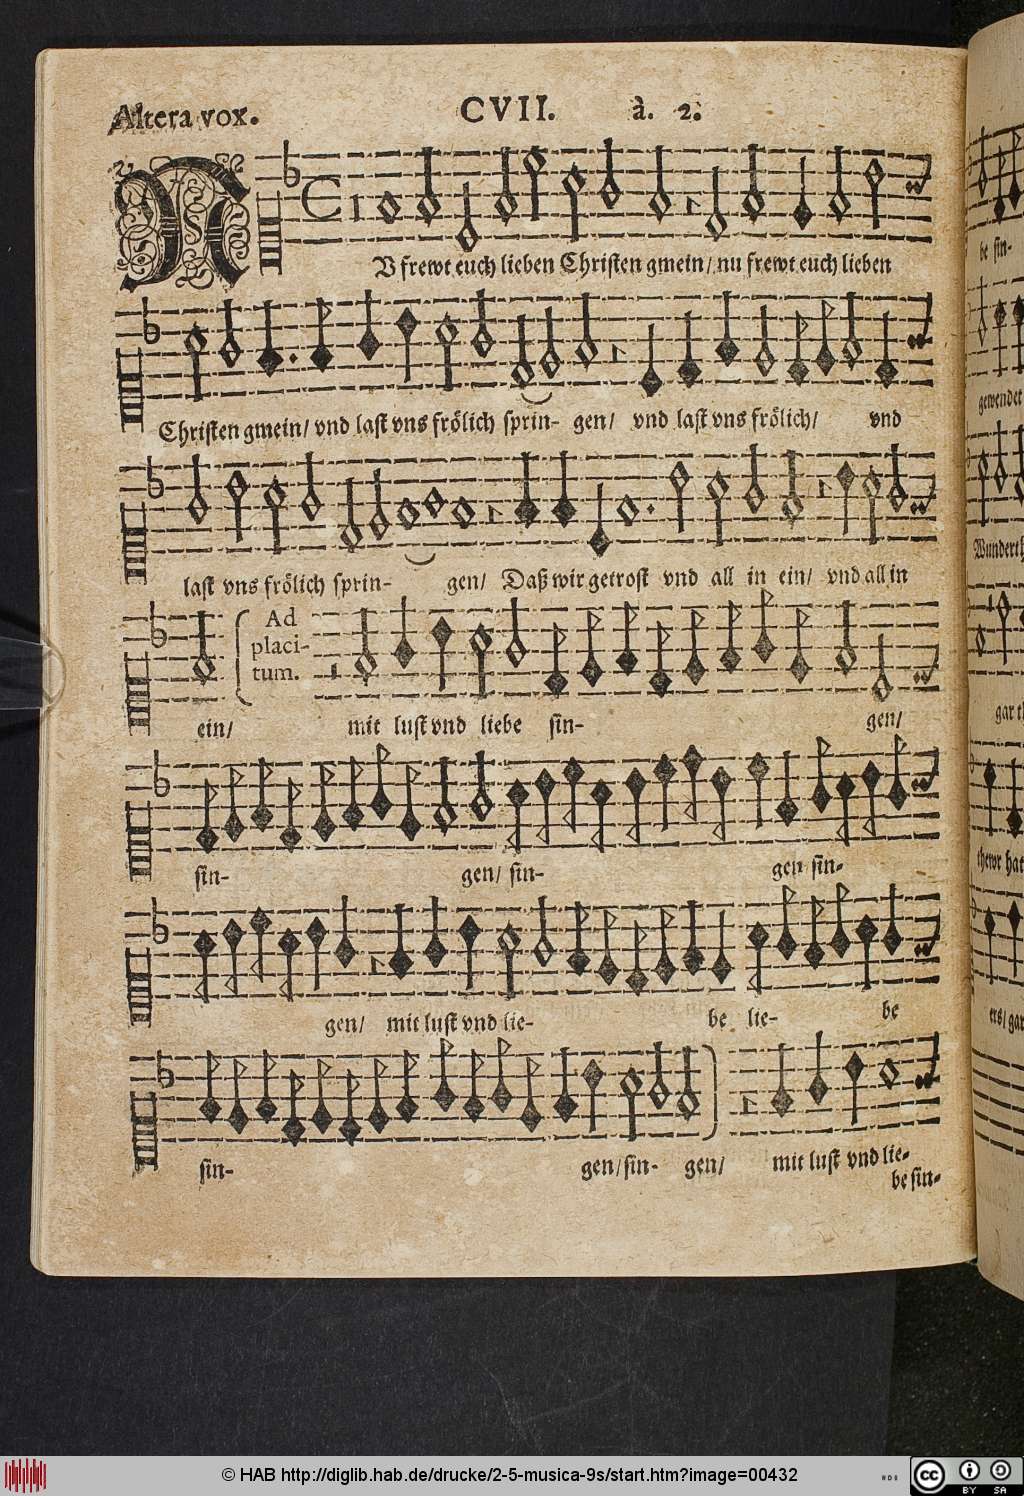 Altera vox. CVII. à. 2.
NV frewt euch lieben Christen gmein/ nu frewt euch lieben
Christen gmein/ vnd last vns frölich sprin- gen/ vnd last vns frölich/ vnd
last vns frölich sprin- gen/ Daß wir getrost vnd all in ein/ vnd all in
Ad
placi-
tum.
ein/ mit lust vnd liebe sin- gen/
sin- gen/ sin- gen sin-
gen/ mit lust vnd lie- be lie- be
sin- gen/ sin- gen/ mit lust vnd lie-
be sin-
be sin-
gewendet
gar
© HAB http://diglib.hab.de/drucke/2-5-musica-9s/start.htm?image=00432
cc BY SA